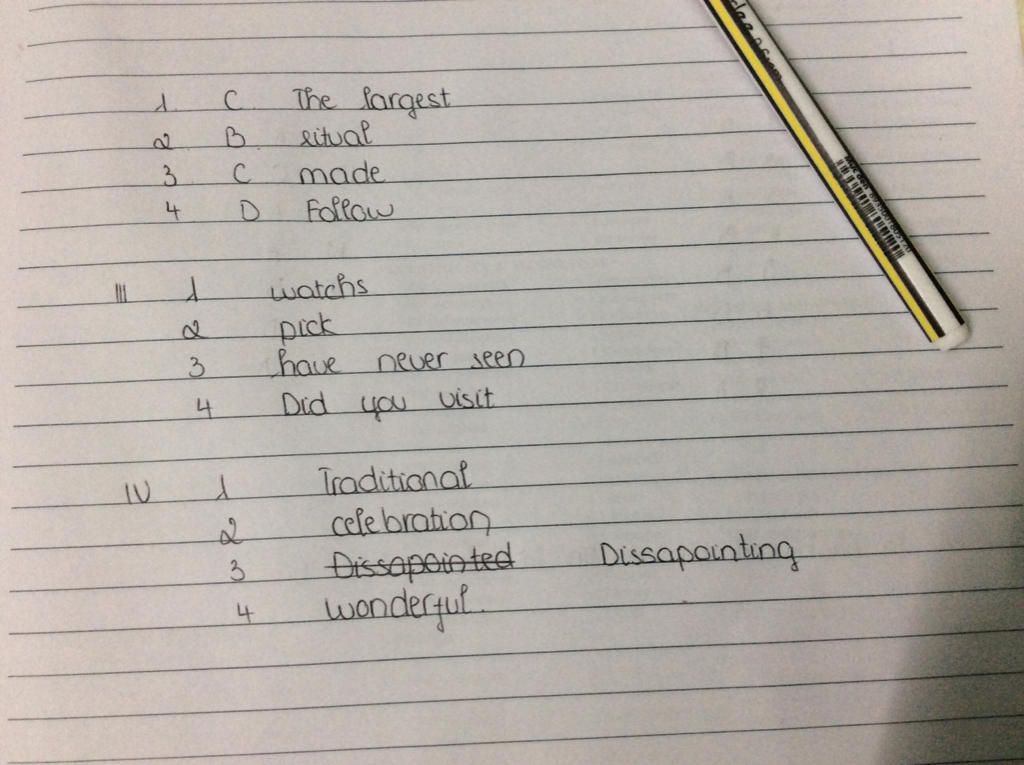 1 C. The largest
2 B. ritual
3 C made
4 D Follow
III 1 watchs
2 pick
3 have never seen
4 Did you visit
IV 1 Traditional
2 celebration
3 Dissapointed Dissapointing
4 wonderful.